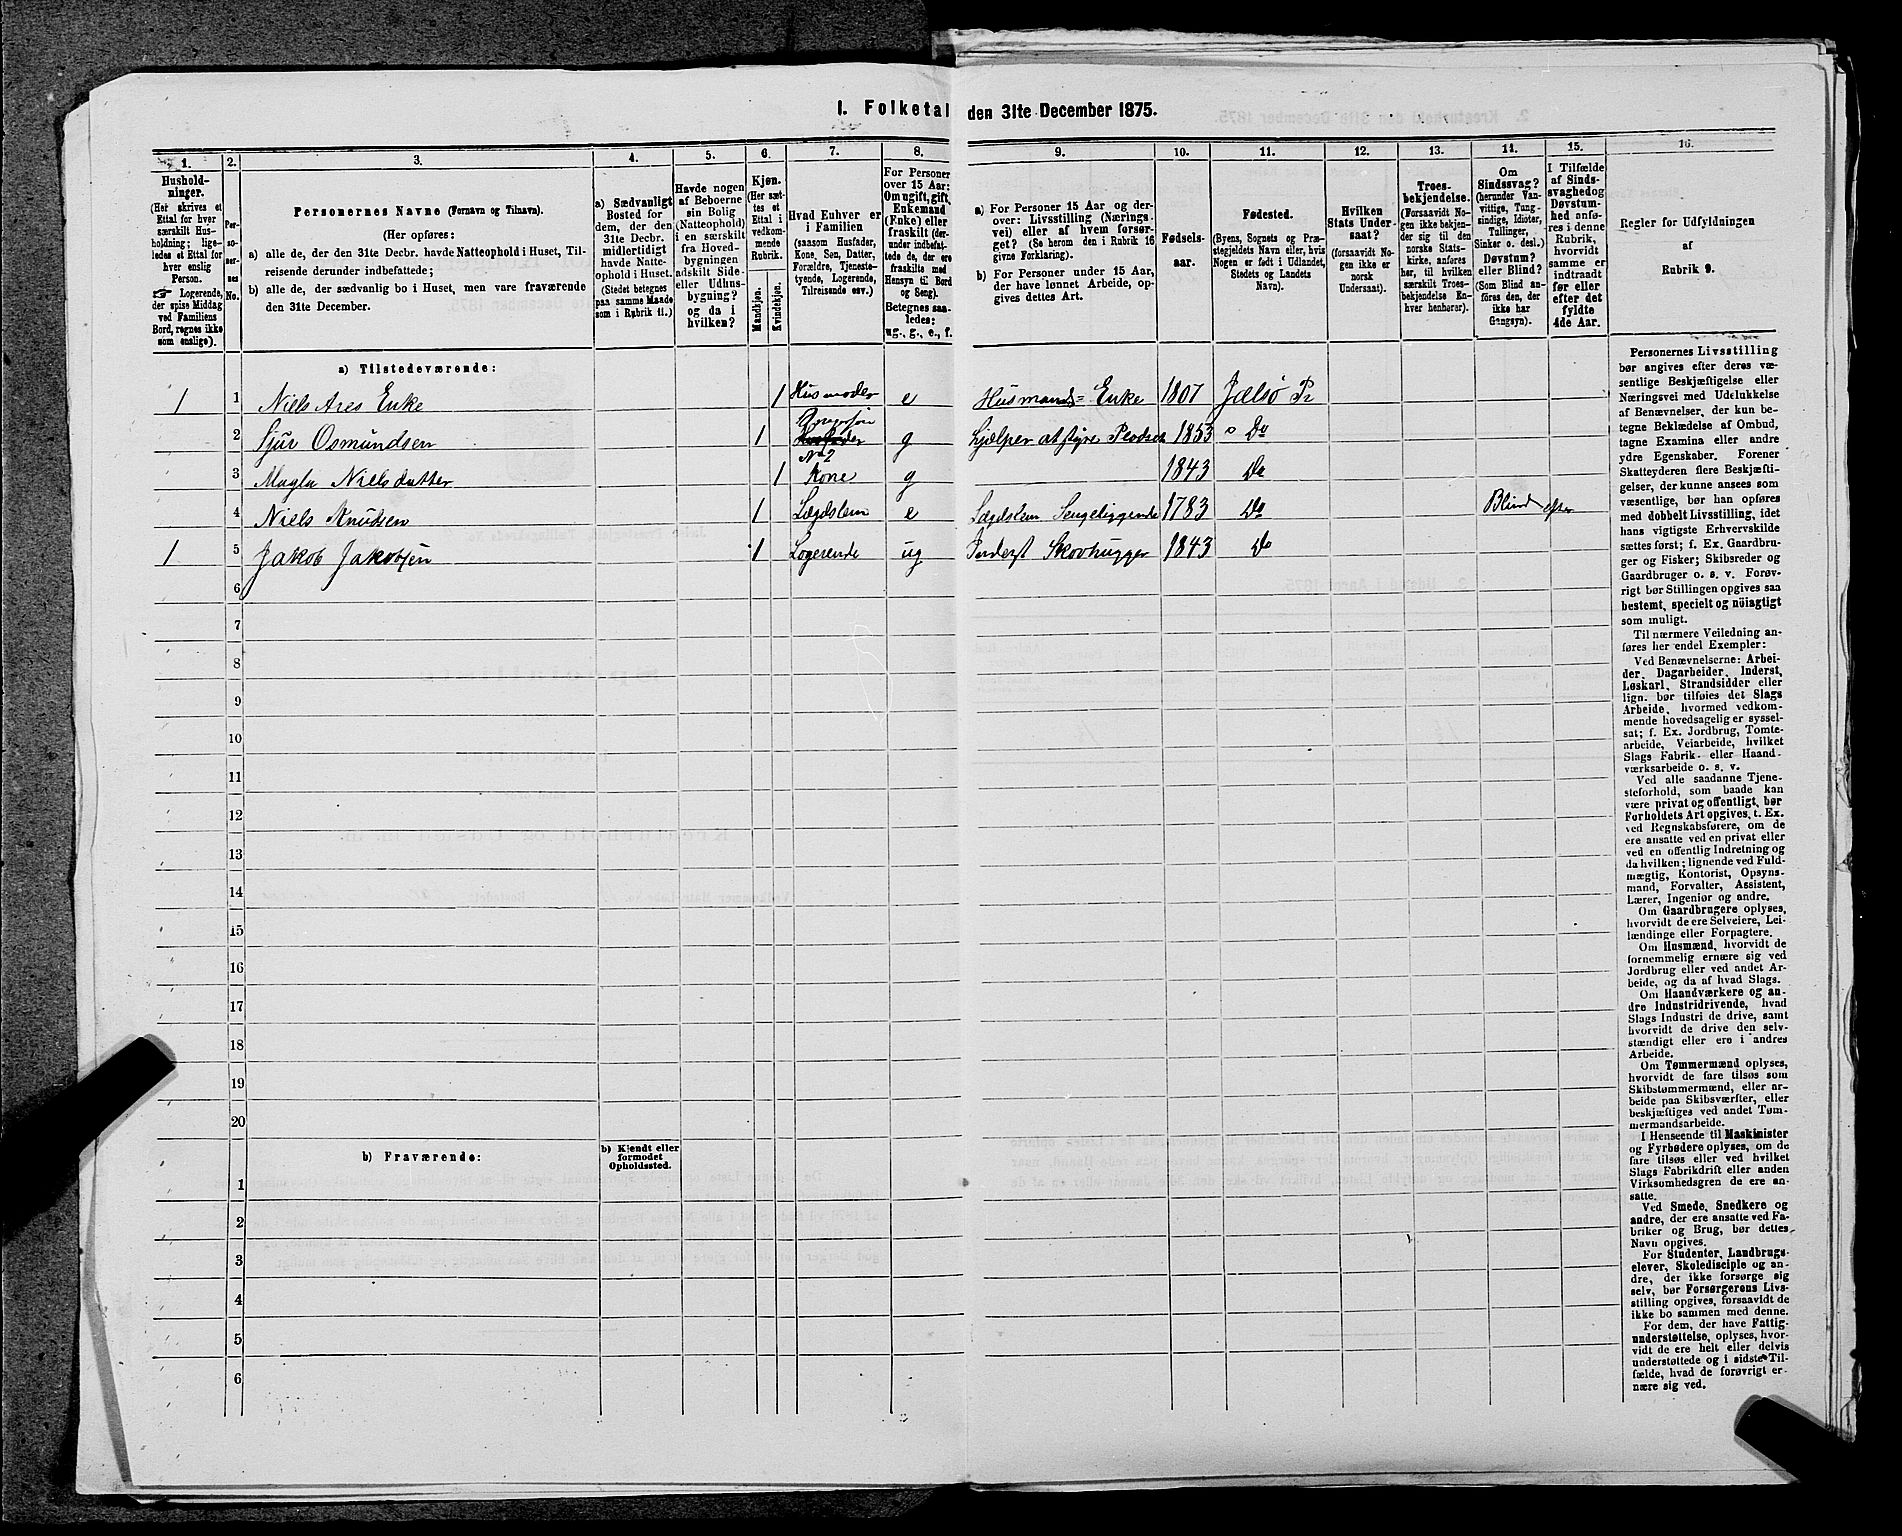 1. Folketal den 31te December 1875.
1. 2. 3. 4. 5. 6. 7. 8. 9. 10. 11. 12. 13. 14. 15. 16.
Hushold-
ninger.
(Her skrives et
Ettal for hver
særskilt Hus-
holdning; lige-
ledes et Ettal for
hver enslig
Person.
☞ Logerende,
der spise Middag
ved Familiens
Bord, regnes ikke
som enslige).
Per-
so-
ner-
nes
No.
Personernes Navne (Fornavn og Tilnavn).
(Her opføres:
a) alle de, der den 31te Decbr. havde Natteophold i Huset, Til-
reisende derunder indbefattede;
b) alle de, der sædvanlig bo i Huset, men vare fraværende
den 31te December.
a) Sædvanligt
Bosted for
dem, der den
31te Decbr.
midlertidigt
havde Natte-
ophold i Huset.
(Stedet betegnes
paa samme Maade
som i Rubrik 11.)
Havde nogen
af Beboerne
sin Bolig
(Natteophold)
i en særskilt
fra Hoved-
bygningen
adskilt Side-
eller Udhus-
bygning?
og da i
hvilken?
Kjøn.
(Her sæt-
tes et
Ettal i
vedkom-
mende
Rubrik.
Mandkjøn.
Kvindekjøn.
Hvad Enhver er
i Familien
(saasom Husfader,
Kone, Søn, Datter,
Forældre, Tjeneste-
tyende, Logerende,
Tilreisende osv.)
For Personer
over 15 Aar:
Om ugift, gift,
Enkemand
(Enke) eller
fraskilt (der-
under indbefat-
tede de, der ere
fraskilte med
Hensyn til Bord
og Seng).
Betegnes saa-
ledes:
ug., g., e., f.
a) For Personer 15 Aar og der-
over: Livsstilling (Nærings-
vei) eller af hvem forsør-
get? (Se herom den i Rubrik 16
givne Forklaring).
b) For Personer under 15 Aar,
der have lønnet Arbeide, op-
gives dettes Art.
Fødsels-
aar.
Fødested.
(Byens, Sognets og Præ-
stegjeldets Navn eller, hvis
Nogen er født i Udlandet,
Stedets og Landets
Navn).
Hvilken
Stats Under-
saat?
(forsaavidt No-
gen ikke er
norsk
Undersaat).
Troes-
bekjendelse.
(Forsaavidt No-
gen ikke bekjen-
der sig til den
norske Stats-
kirke, anføres
her, til hvilken
særskilt Troes-
bekjendelse En-
hver henhører).
Om
Sindssvag?
(herunder Van-
vittige, Tung-
sindige, Idioter,
Tullinger,
Sinker o. desl.)
Døvstum?
eller Blind?
(Som Blind an-
føres den, der
ikke har
Gangsyn).
I Tilfælde
af Sinds-
svaghedog
Døvstum-
hed anfø-
res i denne
Rubrik,
hvorvidt
samme er
indtraadt
før eller
efter det
fyldte
4de Aar.
Regler for Udfyldningen
af
Rubrik 9.
a) Tilstedeværende:
1 1 Niels Ares Enke 1 Husmoder e Husmands= Enke 1807 Jelsø Pr
2 Sjur Osmundsen 1 g Hjælper at styre 1853 Do
3 Magla Nielsdatter 1 No 2 Kone g 1843 Do
4 Niels Knudsen 1 Lægdslem e Lægdslem Sengeliggende 1783 Do Blind efter
1 5 Jakob Jakobsen 1 Logerende ug Inderst Skovhugger 1843 Do
6
7
8
9
10
11
12
13
14
15
16
17
18
19
20
b) Fraværende:
b) Kjendt eller
formodet
Opholdssted.
1
2
3
4
5
6
Personernes Livsstilling
bør angives efter deres væ-
sentlige Beskjæftigelse eller
Næringsvei med Udelukkelse
af Benævnelser, der kun be-
tegne Beklædelse af Ombud,
tagne Examina eller andre
ydre Egenskaber. Forener
Skatteyderen flere Beskjæfti-
gelser, der kunne ansees som
væsentlige, bør han opføres
med dobbelt Livsstilling, idet
hans vigtigste Erhvervskilde
sættes først; f. Ex. Gaardbru-
ger og Fisker; Skibsreder og
Gaardbruger o. s. v. Forøv-
rigt bør Stillingen opgives saa
bestemt, specielt og nöiagtigt
som muligt.
Til nærmere Veiledning an-
føres her endel Exempler:
Ved Benævnelserne: Arbei-
der, Dagarbeider, Inderst,
Løskarl, Strandsidder eller
lign. bør tilføies det Slags
Arbeide, hvormed vedkom-
mende hovedsagelig er syssel-
sat; f. Ex. Jordbrug, Tomte-
arbeide, Veiarbeide, hvilket
Slags Fabrik- eller Haand-
værksarbeide o. s. v.
Ved alle saadanne Tjene-
steforhold, som baade kan
være privat og offentligt, bør
Forholdets Art opgives, t. Ex.
ved Regnskabsførere, om de
ere ansatte ved en privat eller
ved en offentlig Indretning og
da hvilken; lignende ved Fuld-
mægtig, Kontorist, Opsyns-
mand, Forvalter, Assistent,
Lærer, Ingeniør og andre.
Om Gaardbrugere oplyses,
hvorvidt de ere Selveiere, Lei-
lændinge eller Forpagtere.
Om Husmænd, hvorvidt de
fornemmelig ernære sig ved
Jordbrug eller ved andet Ar-
beide, og da af hvad Slags.
Om Haandværkere og an-
dre Industridrivende, hvad
Slags Industri de drive, samt
hvorvidt de drive den selv-
stændigt eller ere i andres
Arbeide.
Om Tømmermænd oplyses,
hvorvidt de fare tilsøs som
Skibstømmermænd, eller ar-
beide paa Skibsværfter, eller
beskjæftiges ved andet Tøm-
mermandsarbeide.
I Henseende til Maskinister
og Fyrbødere oplyses, om de
fare tilsøs eller ved hvilket
Slags Fabrikdrift eller anden
Virksomhedsgren de ere an-
satte.
Ved Smede, Snedkere og
andre, der ere ansatte ved Fa-
briker og Brug, bør dettes
Navn opgives.
For Studenter, Landbrugs-
elever, Skoledisciple og an-
dre, der ikke forsørge sig
selv, bør Forsørgerens Livs-
stilling opgives, forsaavidt de
ikke bo sammen med denne.
For dem, der have Fattig-
understøttelse, oplyses, hvor-
vidt de ere helt eller delvis
understøttede og i sidste Til-
fælde, hvad de forøvrigt er-
nære sig ved.